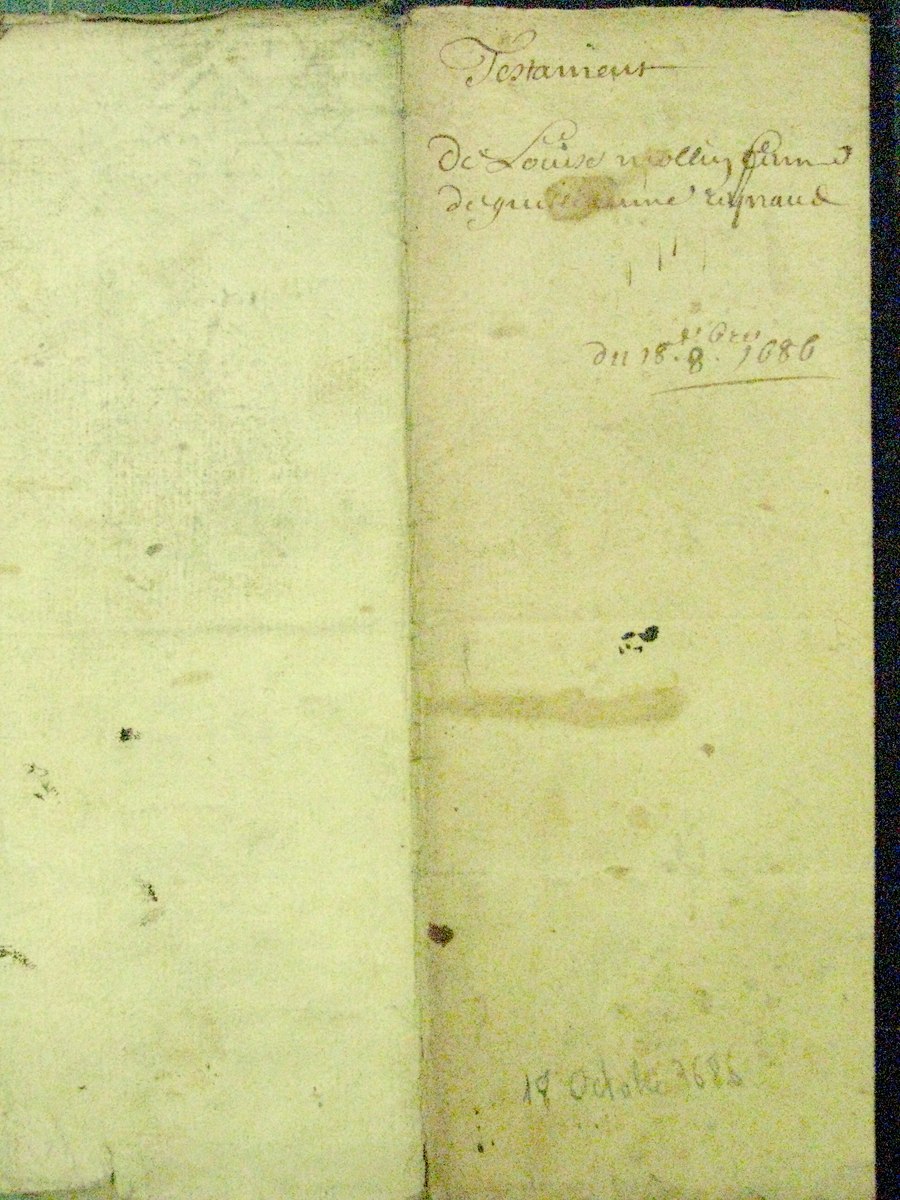 Testament
de Louise mollin femme
de guillaume rignaud
du 18. 8.bre 1686
18 Octobre 1686